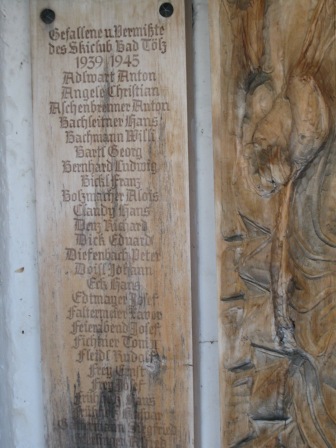 Gefallene u. Vermißte
des Skiclub Bad Tölz
1939 - 1945
Adlwart Anton
Angele Christian
Aschenbrenner Anton
Bachleitner Hans
Bachmann Willi
Bartl Georg
Bernhard Ludwig
Bickl Franz
Bolzmacher Alois
Clandy Hans
Denz Richard
Dick Eduard
Diefenbach Peter
Johann
Eck Hans
Edtmayer Josef
Feierabend Josef
Fichtner Toni
Rudolf
Frey Ernst
Frey Josef
Hans